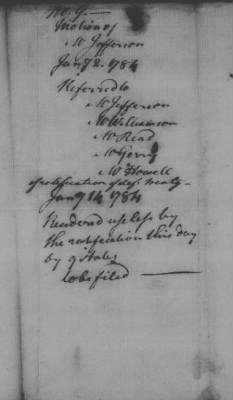 No. 9 —
Motion of
Mr Jefferson
Jany 2. 1784
Referred to
Mr Jefferson
Mr Williamson
Mr Read
Mr Gerry
Mr Howell
ratification of def. treaty —
Jany 14 1784
Rendered useless by
the ratification this day
by 9 states
to be filed —